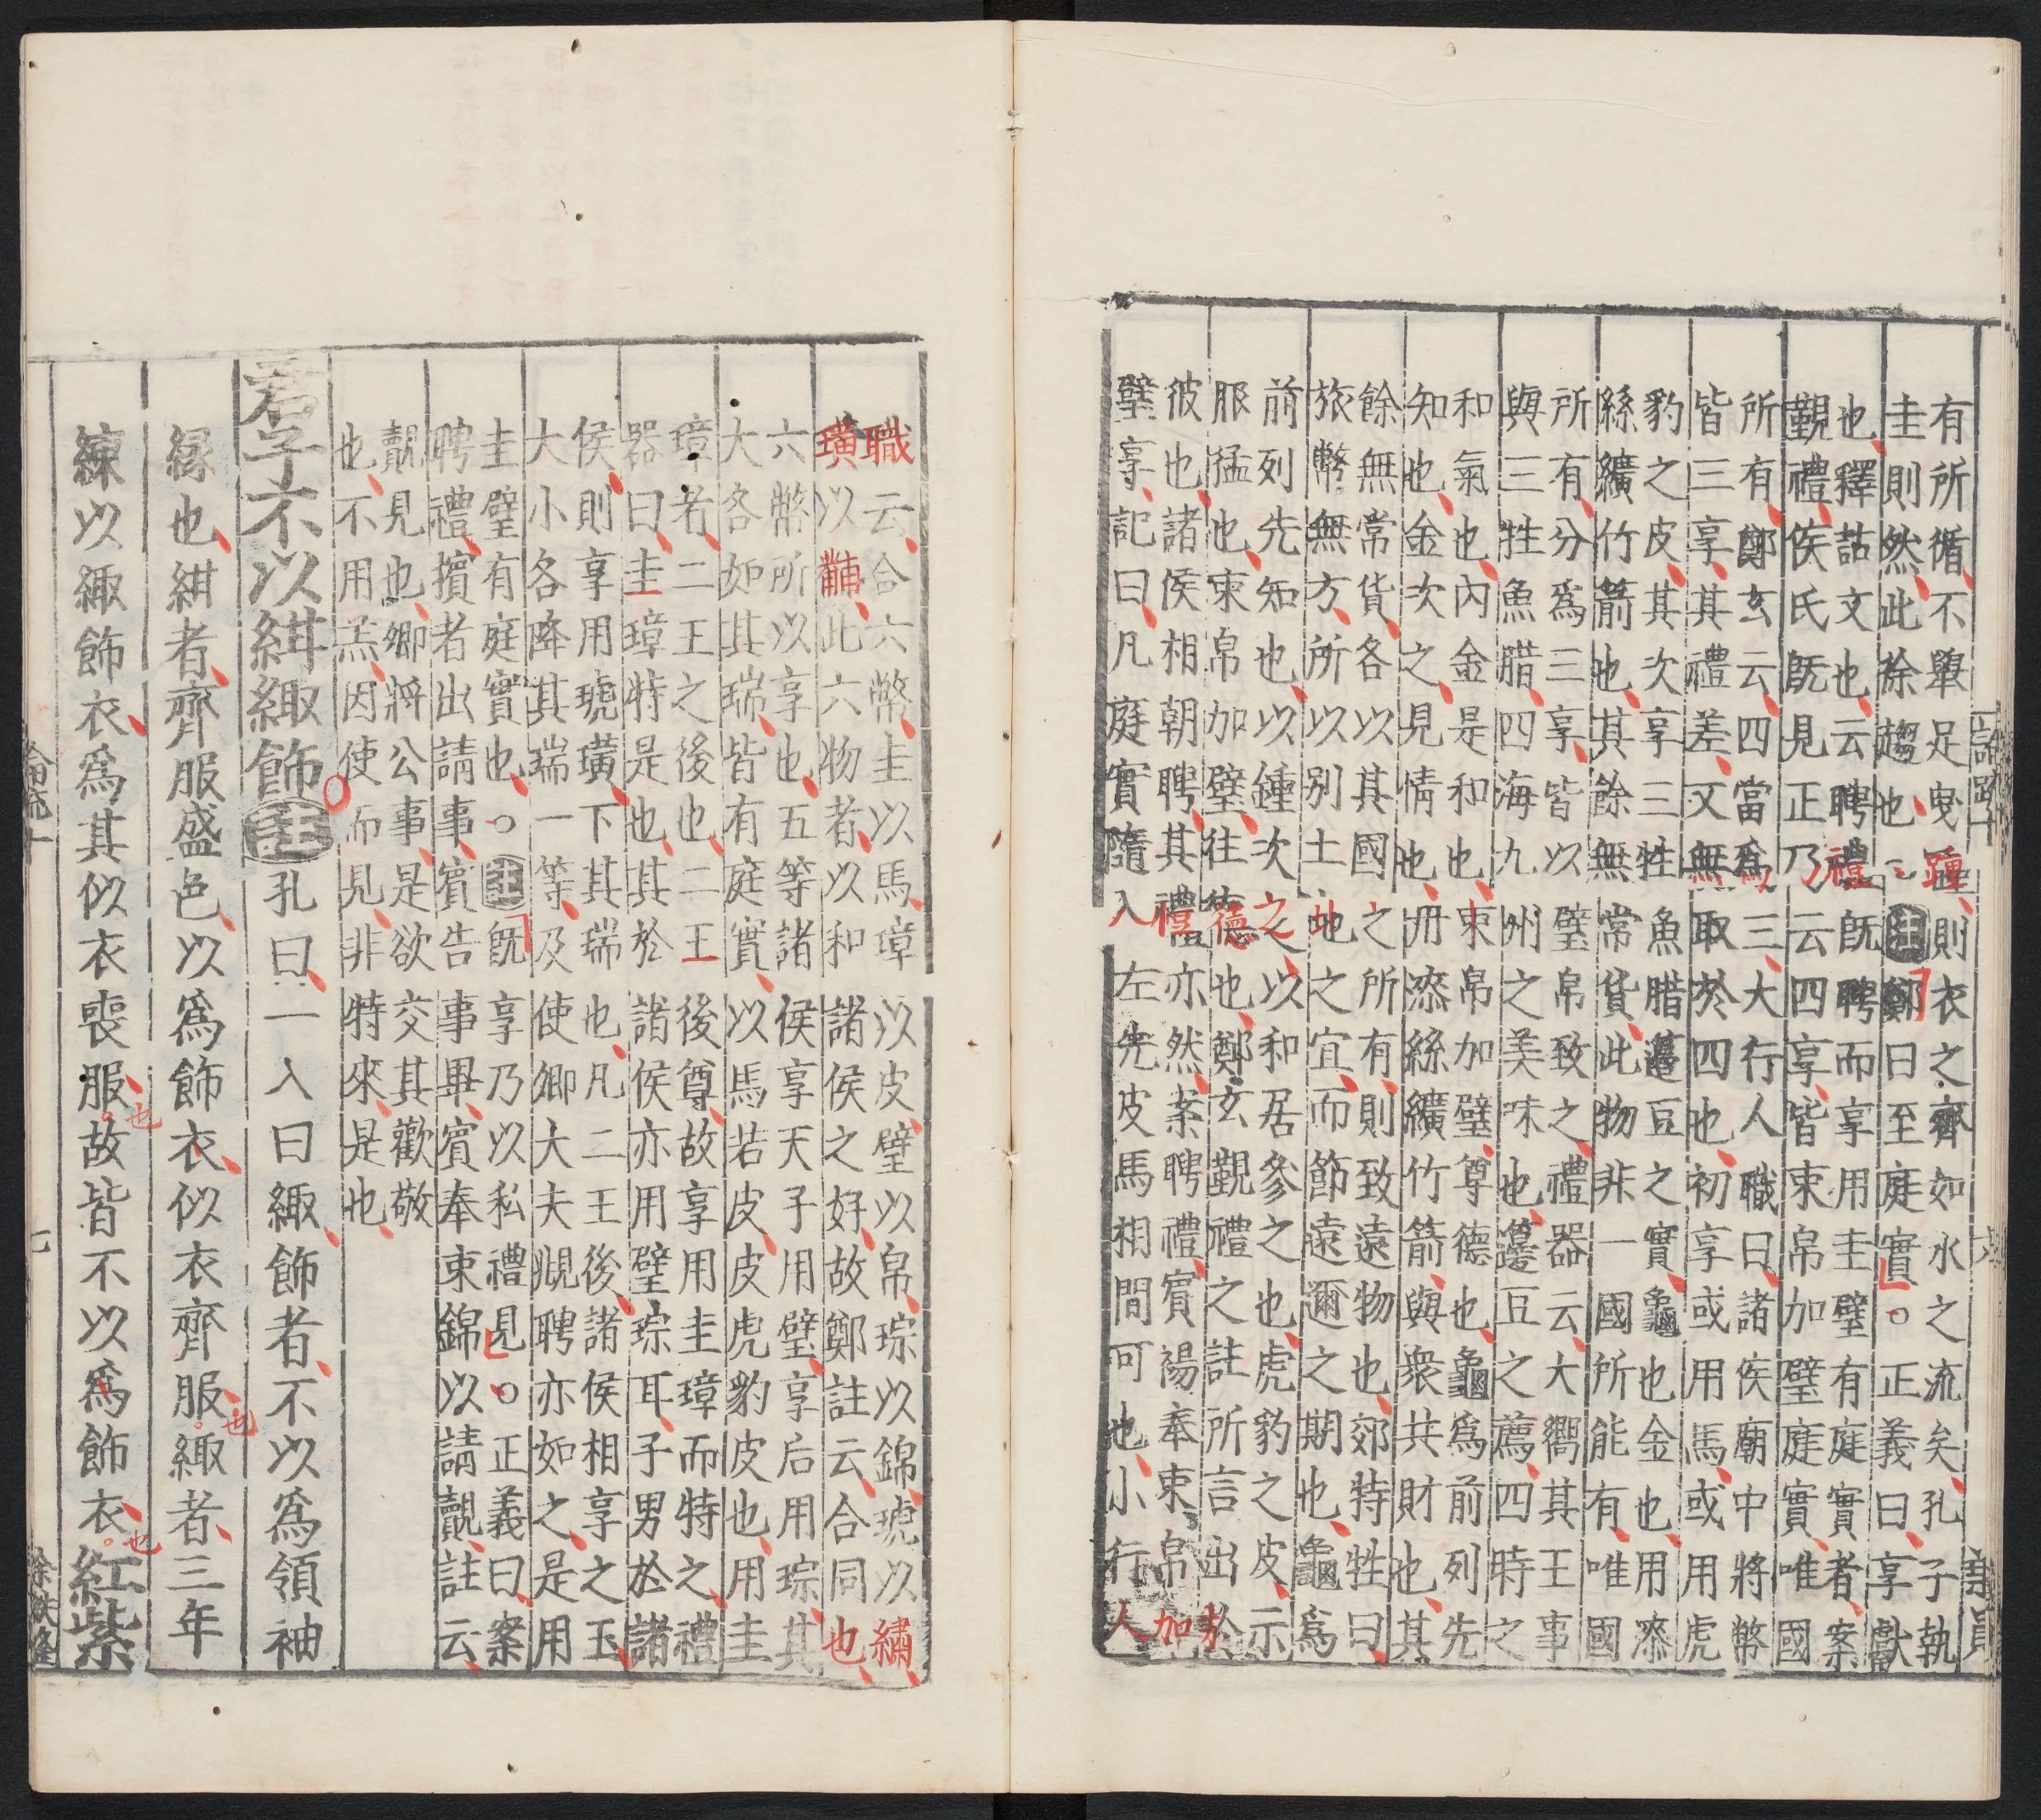 有所循不舉足曳踵則衣之齊如水之流矣孔子執
圭則然此徐趨也註鄭曰至庭實○正義曰享獻
也釋詁文也云聘禮既聘而享用圭璧有庭實者案
覲禮侯氏既見正乃云四享皆束帛加璧庭實唯國
所有鄭玄云四當爲三大行人職曰諸侯廟中將幣
皆三享其禮差又無取於四也初享或用馬或用虎
豹之皮其次享三牲魚腊籩豆之實龜也金也用漆
絲纊竹箭也其餘無常貨此物非一國所能有唯國
所有分爲三享皆以璧帛致之禮器云大饗其王事
與三牲魚腊四海九州之美味也籩豆之薦四時之
和氣也內金是和也束帛加璧尊德也龜爲前列先
知也金次之見情也丹漆絲纊竹箭與衆共財也其
餘無常貨各以其國之所有則致遠物也郊特牲曰
旅幣無方所以別土地之宜而節遠邇之期也龜爲
前列先知也以鍾次之以和居參之也虎豹之皮示
服猛也束帛加璧往德也鄭玄覲禮之註所言出於
彼也諸侯相朝聘其禮亦然案聘禮賓裼奉束帛加
璧享記曰凡庭實隨入左先皮馬相間可也小行人
職云合六幣圭以馬璋以皮璧以帛琮以錦琥以繡
璜以黼此六物者以和諸侯之好故鄭註云合同也
六幣所以享也五等諸侯享天子用璧享后用琮其
大各如其瑞皆有庭實以馬若皮皮虎豹皮也用圭
璋者二王之後也二王後尊故享用圭璋而特之禮
器曰圭璋特是也其於諸侯亦用璧琮耳子男於諸
侯則享用琥璜下其瑞也凡二王後諸侯相享之玉
大小各降其瑞一等及使卿大夫覜聘亦如之是用
圭璧有庭實也○註既享乃以私禮見○正義曰案
聘禮擯者出請事賓告事畢賓奉束錦以請覿註云
覿見也鄉將公事是欲交其歡敬
也不用羔因使而見非特來是也
君子不以紺緅飾註孔曰一入曰緅飾者不以爲領袖
緣也紺者齊服盛色以爲飾衣似衣齊服也緅者三年
練以緅飾衣爲其似衣喪服也故皆不以爲飾衣也紅紫